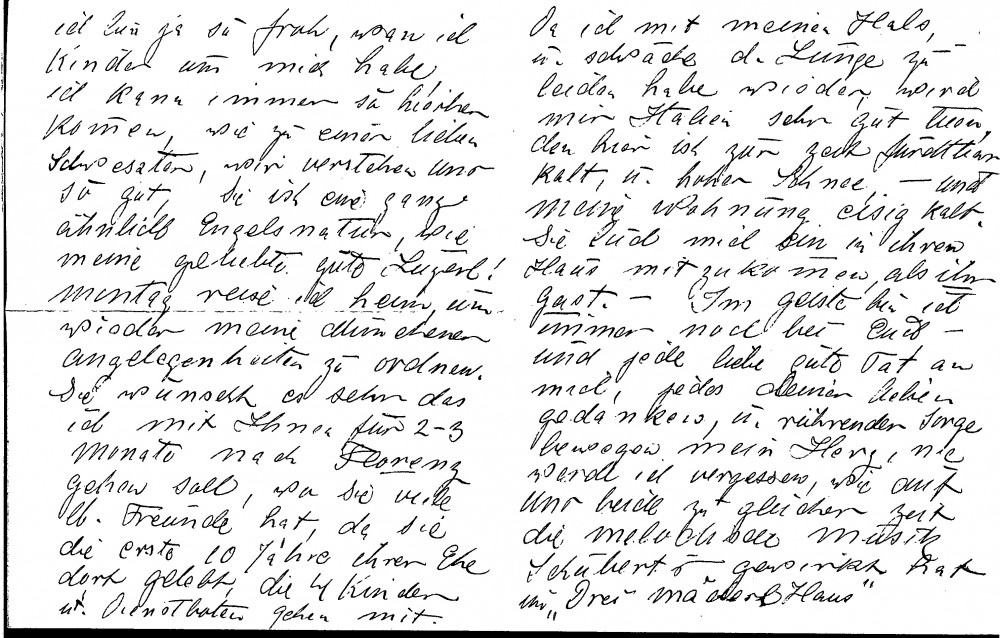 ich bin ja so froh, wan ich
Kinder um mich habe,
ich kann immer so hierher
komen, wie zu einer lieben
Schwester, wir verstehen uns
so gut, Sie ist eine ganz
ähnliche Engelsnatur, wie
meine geliebte gute Luzerl!
Montag reise ich heim, um
wieder meine Münchener
angelegenheiten zu ordnen.
Sie wünscht es sehr das
ich mit Ihnen für 2-3
Monate nach Florenz
gehen soll, wo Sie viele
lb. Freunde hat, da sie
die erste 10 Jahre ihrer Ehe
dort gelebt, die 4 Kinder
u. Dienstboten gehen mit.
Da ich mit meinem Hals,
u. schwäche d. Lunge zu
leiden habe wieder, wird
mir Italien sehr gut tuen,
den hier ist zur zeit fürchtbar
kalt, u. hoher Schnee, — und
meine Wohnung eisig kalt.
Sie lud mich ein in ihrem
Haus mitzukomen, als ihr
gast. — Im geiste bin ich
immer noch bei Euch —
und jede liebe gute Tat an
mich, jedes Deiner lieben
gedanken, u. rührender Sorge
bewegen mein Herz, nie
werde ich vergessen, wie auf
uns beide zu gleicher zeit
die melodiose Musik
Schubert's gewirkt hat
im „Drei Mäderl Haus"